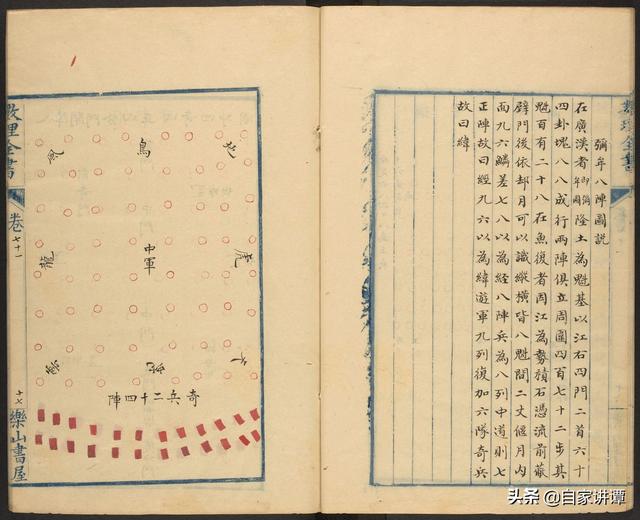 數理全書
彌牟八陣圖說
在廣漢者即彌牟圖隆土為魁基以江右四門二首六十
四卦塊八八成行兩陣俱立周圍四百七十二步其
魁百有二十八在魚復者因江為勢積石憑流前蔽
壁門後依却月可以識縱橫皆八魁間二丈偃月內
面九六鱗差七八以為經八陣兵為八列中道則七
正陣故曰經九六以為緯遊軍九列復加六隊奇兵
故曰緯
地
鳥
風
虎
中軍
龍
奇兵二十四陣
數理全書
卷七十一
十七
樂山書屋
头条 @自家讲谭